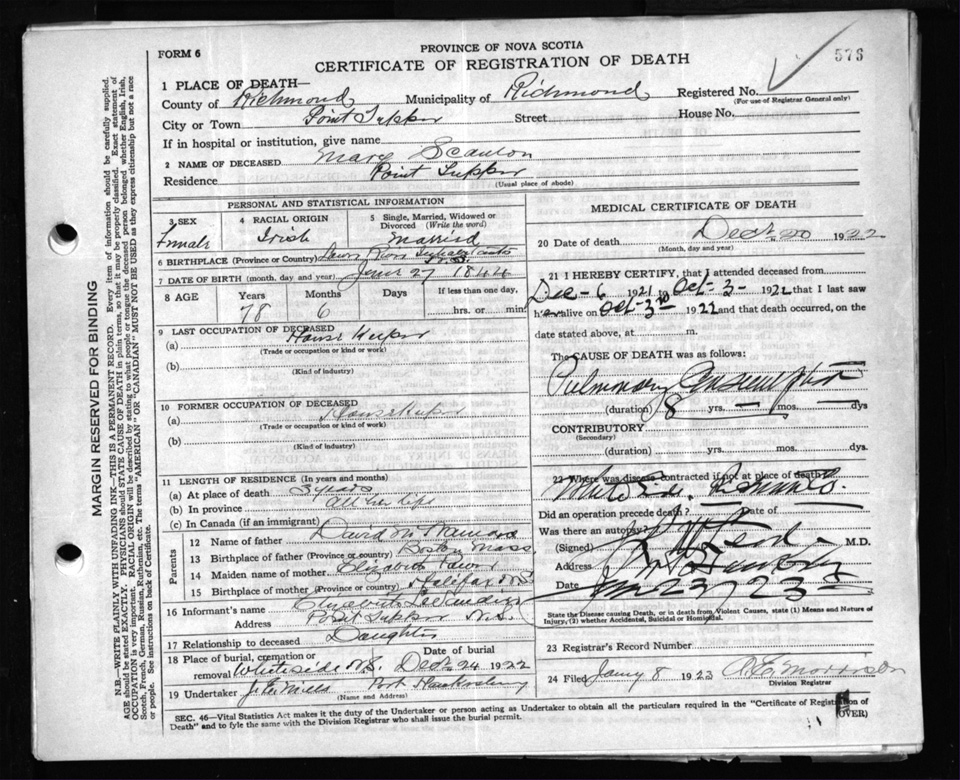 FORM 6
PROVINCE OF NOVA SCOTIA
CERTIFICATE OF REGISTRATION OF DEATH
576
1 PLACE OF DEATH—
County of Richmond Municipality of Richmond Registered No.
(For use of Registrar General only)
City or Town Point Tupper Street House No.
If in hospital or institution, give name
2 NAME OF DECEASED Mary Scanlon
Residence Point Tupper
(Usual place of abode)
PERSONAL AND STATISTICAL INFORMATION
3 SEX Female
4 RACIAL ORIGIN Irish
5 Single, Married, Widowed or Divorced (Write the word) Married
6 BIRTHPLACE (Province or Country)
7 DATE OF BIRTH (month, day and year) June 27 1844
8 AGE Years 78 Months 6 Days If less than one day, hrs. or min.
9 LAST OCCUPATION OF DECEASED
(a) House Keeper
(Trade or occupation or kind or work)
(b)
(Kind of industry)
10 FORMER OCCUPATION OF DECEASED
(a) House Keeper
(Trade or occupation or kind or work)
(b)
(Kind of industry)
11 LENGTH OF RESIDENCE (In years and months)
(a) At place of death 3 years
(b) In province all her life
(c) In Canada (if an immigrant)
Parents
12 Name of father David
13 Birthplace of father (Province or country) Boston Mass
14 Maiden name of mother Elizabeth
15 Birthplace of mother (Province or country) Halifax N.S.
16 Informant's name Elizabeth
Address Point Tupper N.S.
17 Relationship to deceased Daughter
18 Place of burial, cremation or removal Whiteside N.S. Date of burial Dec 24 1922
19 Undertaker Port Hawkesbury
(Name and Address)
MEDICAL CERTIFICATE OF DEATH
20 Date of death Dec 20 1922
(Month, day and year)
21 I HEREBY CERTIFY, that I attended deceased from
Dec - 6 1921 to Oct - 3 - 1922 that I last saw
her alive on Oct - 3rd 1922 and that death occurred, on the
date stated above, at m.
The CAUSE OF DEATH was as follows:
Pulmonary Consumption
(duration) 8 yrs. — mos. — dys
CONTRIBUTORY
(Secondary)
(duration) yrs. mos. dys.
22 Where was disease contracted if not at place of death?
White Side
Did an operation precede death? Date of
Was there an autopsy?
(Signed) M.D.
Address
Date Jan 23 - 23
State the Disease causing Death, or in death from Violent Causes, state (1) Means and Nature of
Injury, (2) whether Accidental, Suicidal or Homicidal.
23 Registrar's Record Number
24 Filed Jany 8 1923 Morrison
Division Registrar
SEC. 46—Vital Statistics Act makes it the duty of the Undertaker or person acting as Undertaker to obtain all the particulars required in the "Certificate of Registration of
Death" and to fyle the same with the Division Registrar who shall issue the burial permit. (OVER)
MARGIN RESERVED FOR BINDING
N.B.—WRITE PLAINLY WITH UNFADING INK—THIS IS A PERMANENT RECORD. Every item of information should be carefully supplied.
AGE should be stated EXACTLY. PHYSICIANS should STATE CAUSE OF DEATH in plain terms, so that it may be properly classified. Exact statement of
OCCUPATION is very important. RACIAL ORIGIN will be described by stating to what people or tongue the deceased person belonged whether English, Irish,
Scotch, French, German, Russian, Ruthenian, etc. The terms "AMERICAN" OR "CANADIAN" MUST NOT BE USED as they express citizenship but not a race
or people. See instructions on back of Certificate.